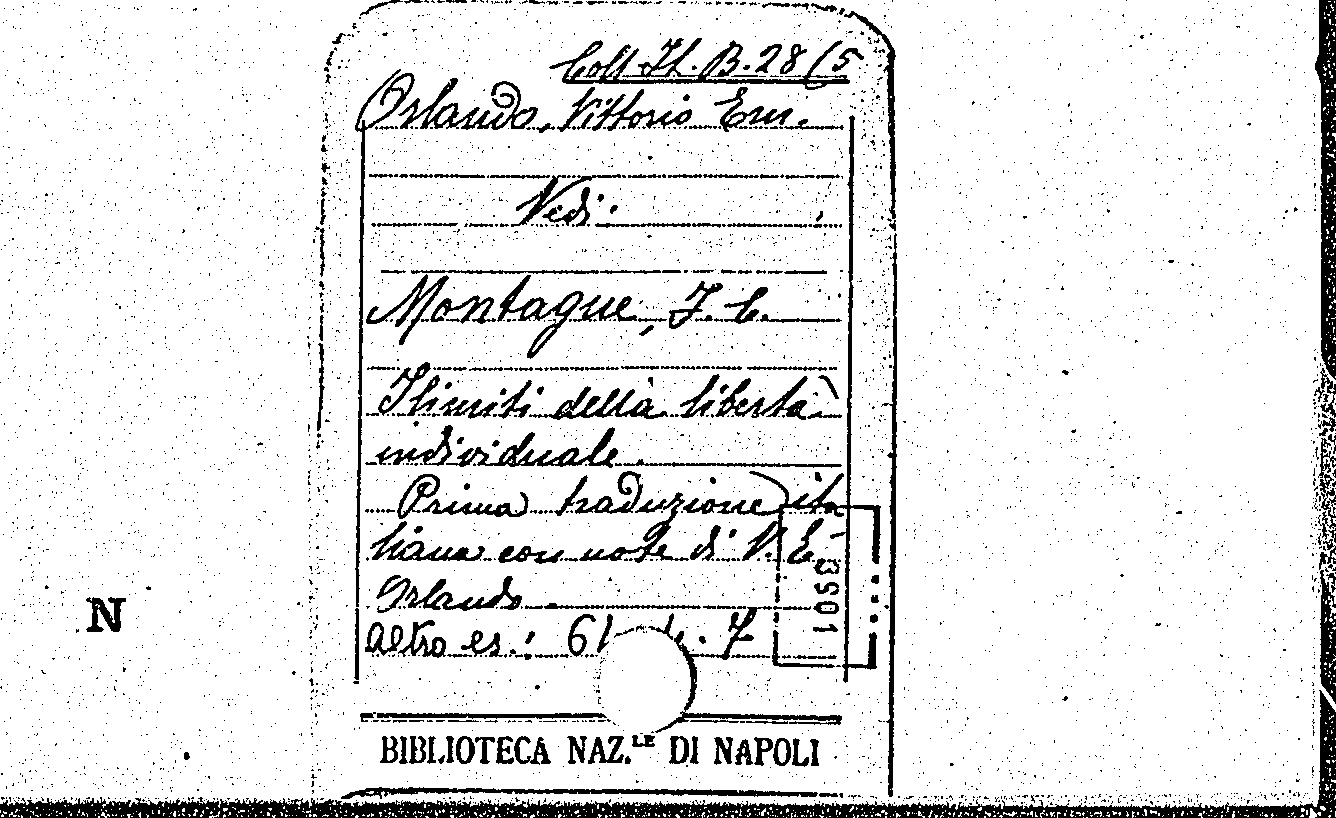 Coll. It. B. 28 (5
Orlando, Vittorio Em.
Vedi:
Montague, F. C.
I limiti della libertà
individuale.
Prima traduzione ita
liana con note di V. E.
Orlando.
altro es.: 61 7
3S01
N
BIBLIOTECA NAZ.LE DI NAPOLI